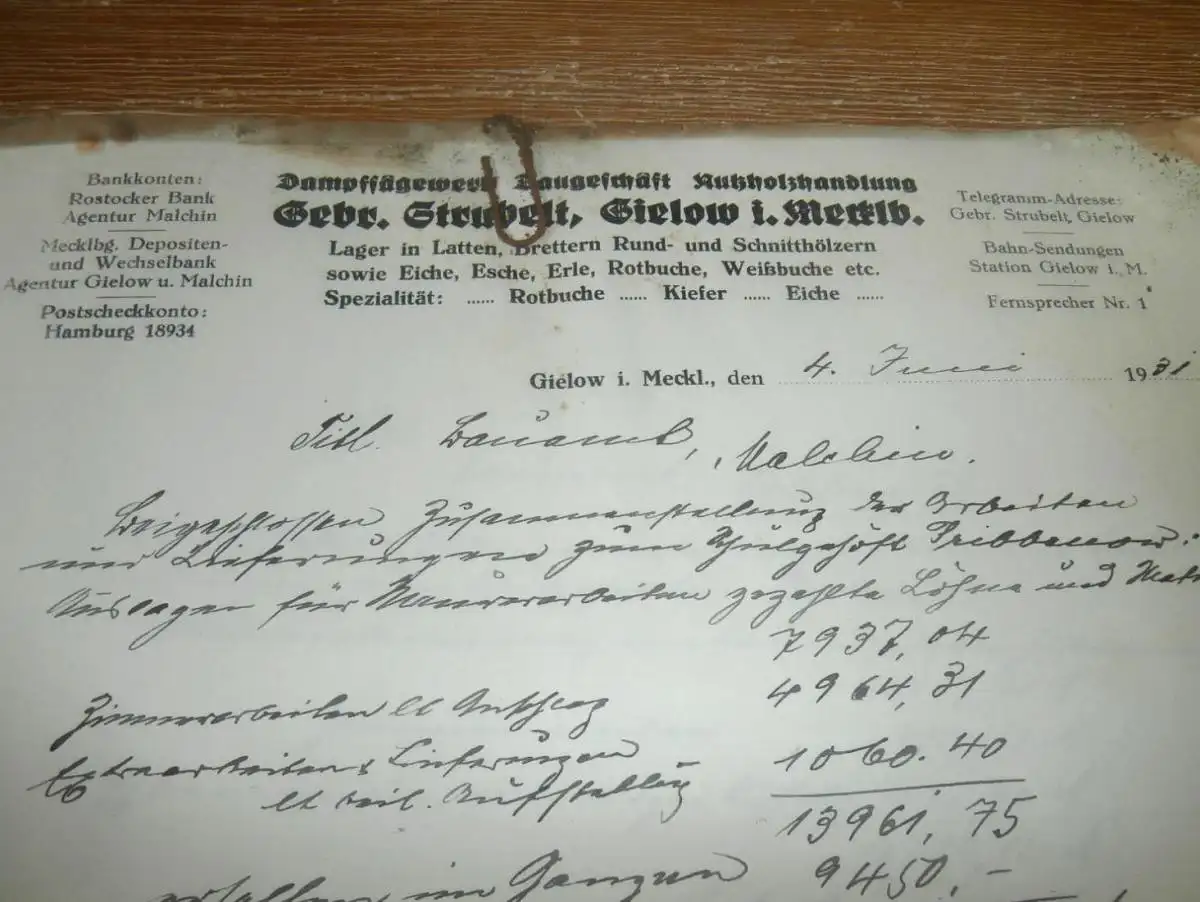 Bankkonten:
Rostocker Bank
Agentur Malchin
Mecklbg. Depositen-
und Wechselbank
Agentur Gielow u. Malchin
Postscheckkonto:
Hamburg 18934
Dampfsägewerk Baugeschäft Nutzholzhandlung
Gebr. Strubelt, Gielow i. Mecklb.
Lager in Latten, Brettern Rund- und Schnitthölzern
sowie Eiche, Esche, Erle, Rotbuche, Weißbuche etc.
Spezialität: ...... Rotbuche ...... Kiefer ...... Eiche ......
Telegramm-Adresse:
Gebr. Strubelt, Gielow
Bahn-Sendungen
Station Gielow i. M.
Fernsprecher Nr. 1
Gielow i. Meckl., den 4. Juni 1931
Titl. Bauamt, Malchin.
Beigeschlossen Zusammenstellung der Arbeiten
und Lieferungen zum Schulgehöft Pribbenow:
Auslagen für Maurerarbeiten gezahlte Löhne und Mat
7937,04
Zimmerarbeiten lt Anschlag 4964,31
Extraarbeiten & Lieferungen 1060.40
lt beil. Aufstellung
13961,75
erhalten im Ganzen 9450,-